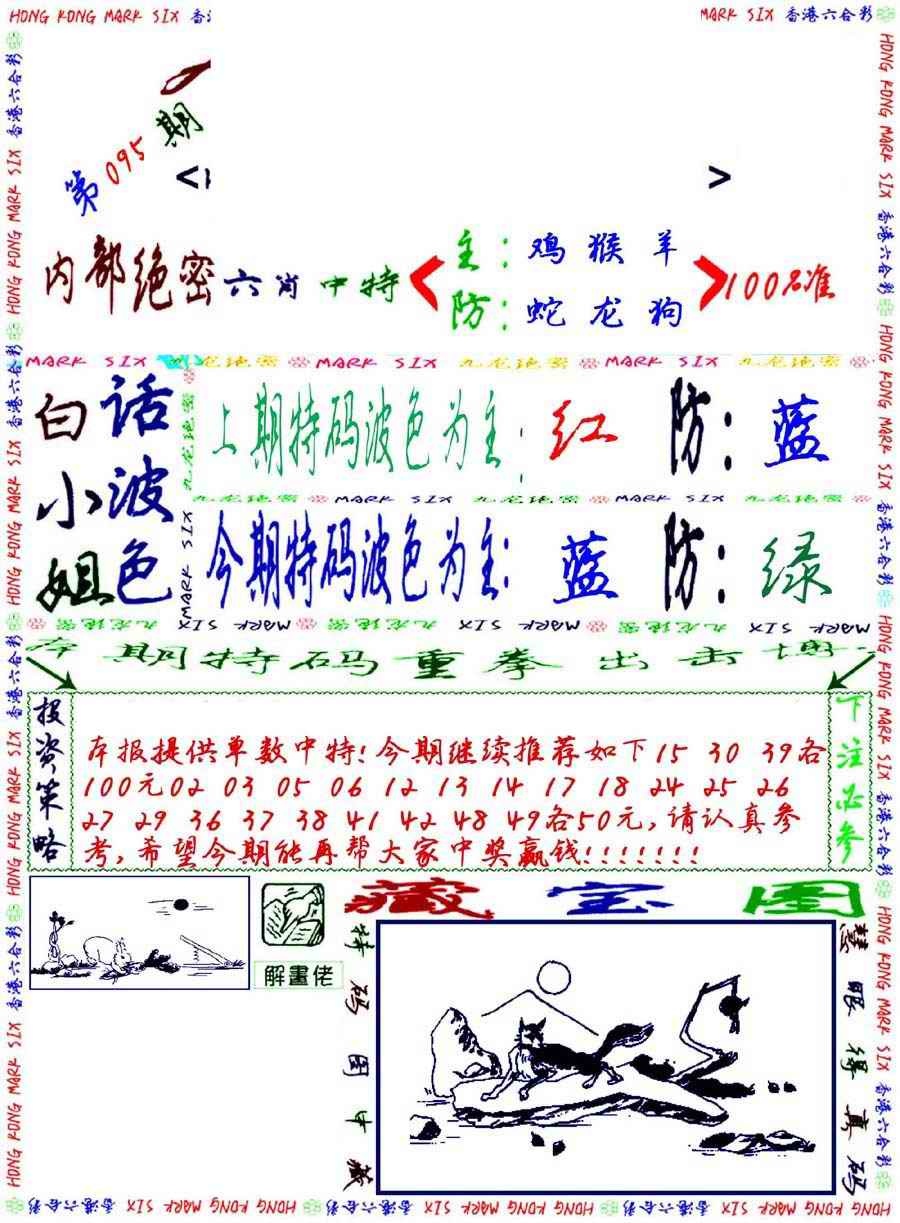 HONG KONG MARK SIX 香港
MARK SIX 香港六合彩
第095期
< >
内部绝密六肖中特
主：鸡猴羊
防：蛇龙狗
100%准
MARK SIX 九龙绝密 MARK SIX 九龙绝密 MARK SIX 九龙绝密
白话小波姐色
上期特码波色为主：红 防：蓝
九龙绝密 MARK SIX 九龙绝密 MARK SIX
今期特码波色为主：蓝 防：绿
MARK SIX 九龙绝密 MARK SIX 九龙绝密 MARK SIX
本期特码重拳出击
投资策略
本报提供单数中特!今期继续推荐如下15 30 39各
100元02 03 05 06 12 13 14 17 18 24 25 26
27 29 36 37 38 41 42 48 49各50元,请认真参
考,希望今期能再帮大家中奖赢钱!!!!!!!
下注必参
藏宝图
解畫佬
特码图中藏
慧眼得真码
HONG KONG MARK SIX 香港六合彩